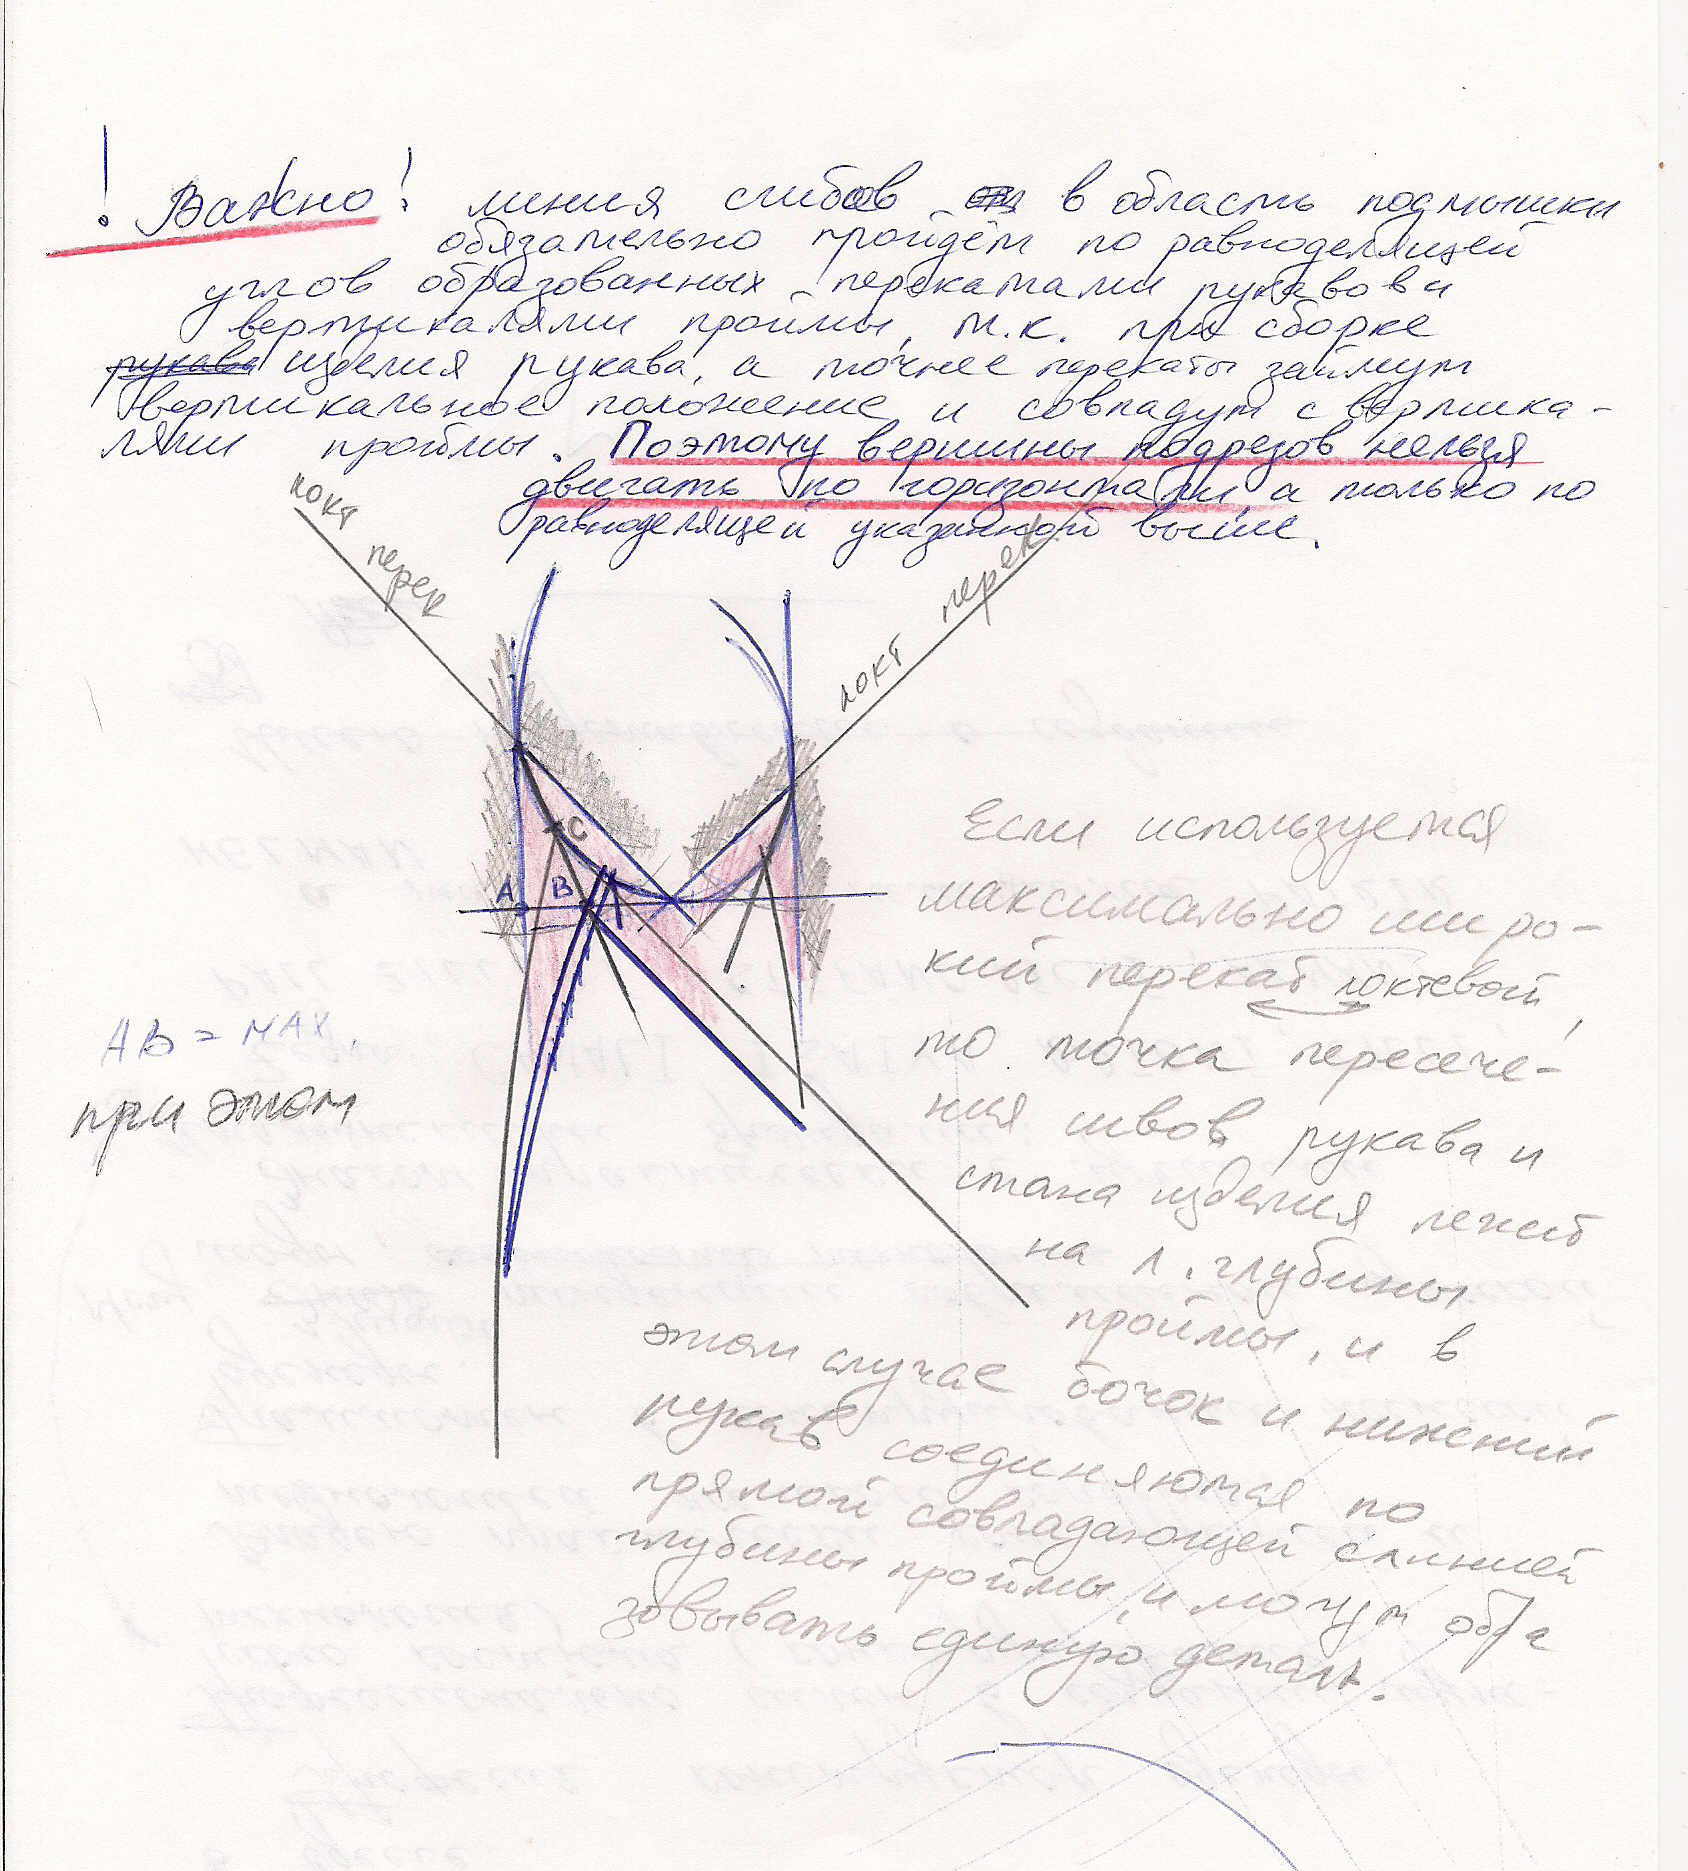 ! Важно! линия сгибов в область подмышки
обязательно пройдём по равноделящей
углов образованных перекатами рукавов и
вертикалями проймы, т.к. при сборке
рукава изделия рукава, а точнее перекаты займут
вертикальное положение и совпадут с вертика-
лями проймы. Поэтому вершины подрезов нельзя
двигать по горизонтали, а только по
равноделящей указанной выше.
локт перек
локт перек.
C
A B
Если используется
максимально широ-
кий перекат локтевой,
то точка пересече-
ния швов рукава и
стана изделия лежит
на л. глубины
проймы, и в
этом случае бочок и нижний
рукав соединяются по
прямой совпадающей с линией
глубины проймы, и могут обра
зовывать единую деталь.
AB = MAX.
при этом